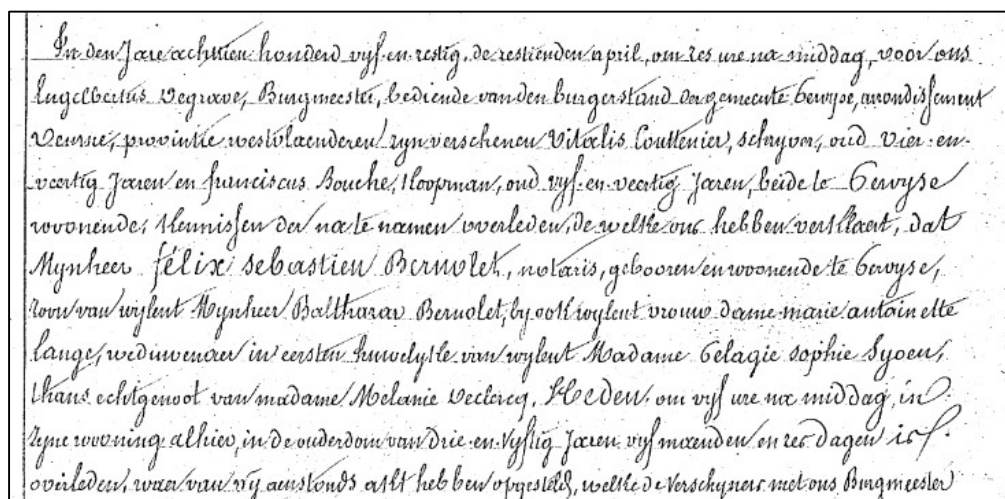 In den Jare achttien honderd vyf en zestig, de zestienden april, om zes ure na middag, voor ons
Engelbertus Degrave, Burgmeester, bediende van den burgerstand der gemeente Pervyse, arrondissement
Veurne, provintie westvlaenderen zyn verschenen Vitalis Couttenier, schryver, oud vier-en-
veertig Jaren en franciscus Bouche, Koopman, oud vyf-en-veertig Jaren, beide te Pervyse
woonende, Kennissen der na te namen overleden, de welke ons hebben verklaert, dat
Mynheer félix sebastien Bernolet, notaris, gebooren en woonende te Pervyse,
zoon van wylent Mynheer Balthazar Bernolet, by ook wylent vrouw dame marie antoinette
Lange, weduwenaer in eersten huwelykke van wylent Madame Pelagie sophie Syoen,
thans echtgenoot van madame Melanie Declercq, Heden, om vyf ure na middag, in
zyne wooning alhier, in de ouderdom van drie-en-vyftig Jaren vyf maenden en zes dagen is
overleden, waer van wy aenstonds akt hebben opgesteld, welke de verschyners met ons Burgmeester